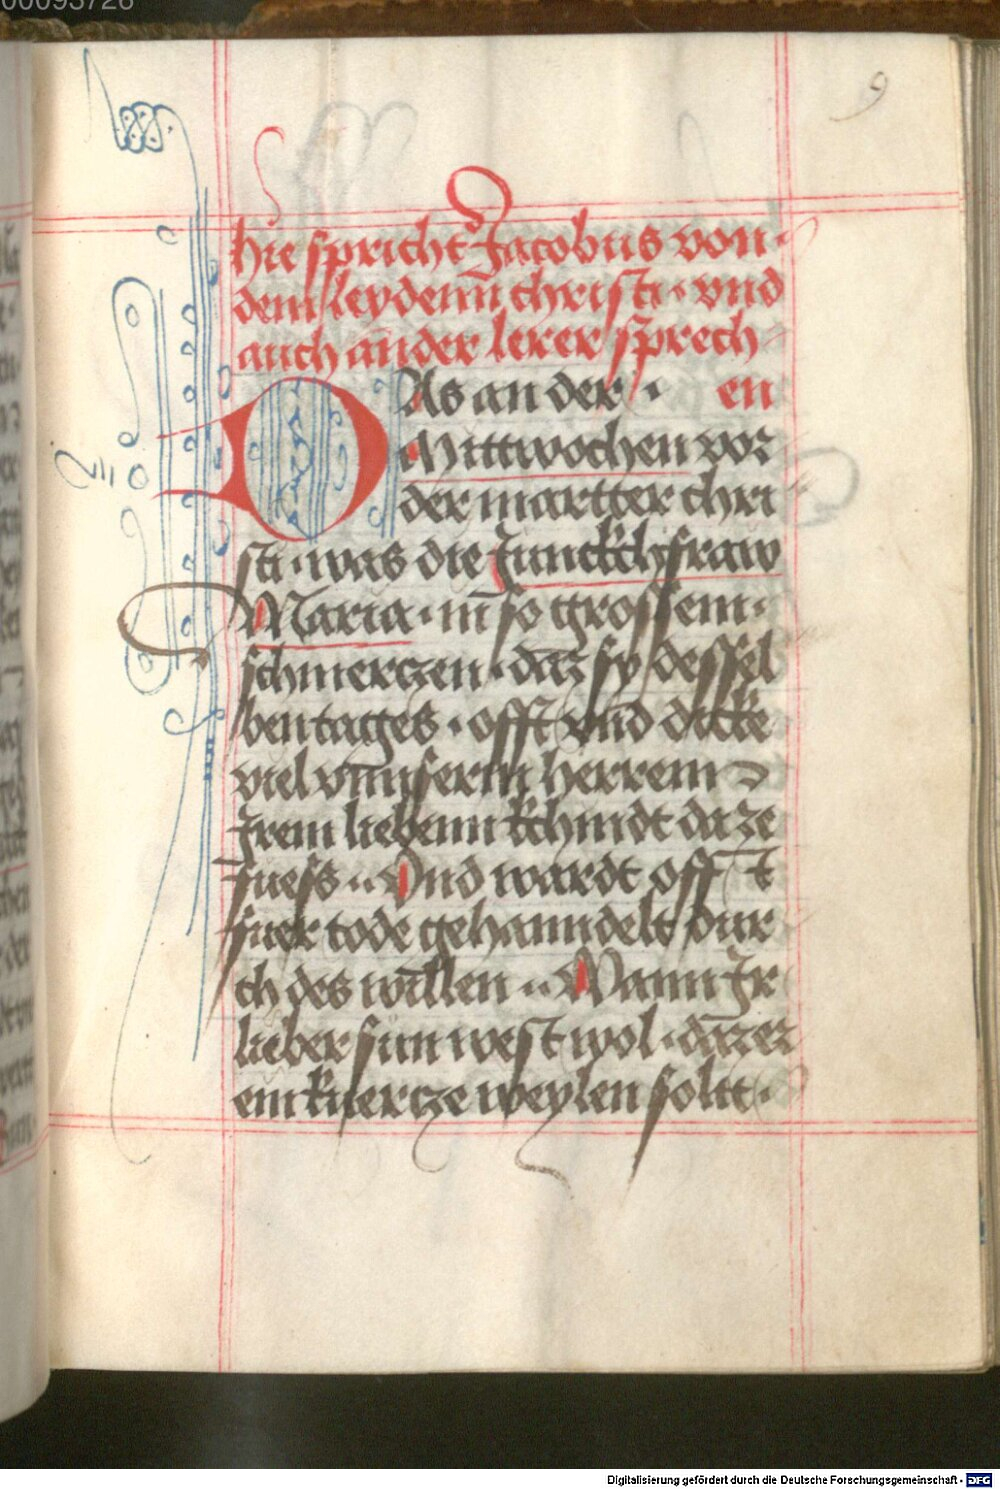 00093726
9
Hie spricht Jacobus von·
dem leydenn christi·· vnd
auch ander lerer sprech
en
DAs an der ·
Mittwochen vor
der martter chri
sti· was die Junckchfraw
Maria· in so grossem·
schmerczen· daz sy dessel
ben tages· offt vnd dicke
viel vnnserm herrem
Jrem liebenn kchindt da ze
fuess·· Vnd wardt offt
fuer tode gehanndelt dur
ch des willen·· Wann Jr
lieber sun west wol· daz er
ein kuercze weylen soltt·
Digitalisierung gefördert durch die Deutsche Forschungsgemeinschaft - DFG